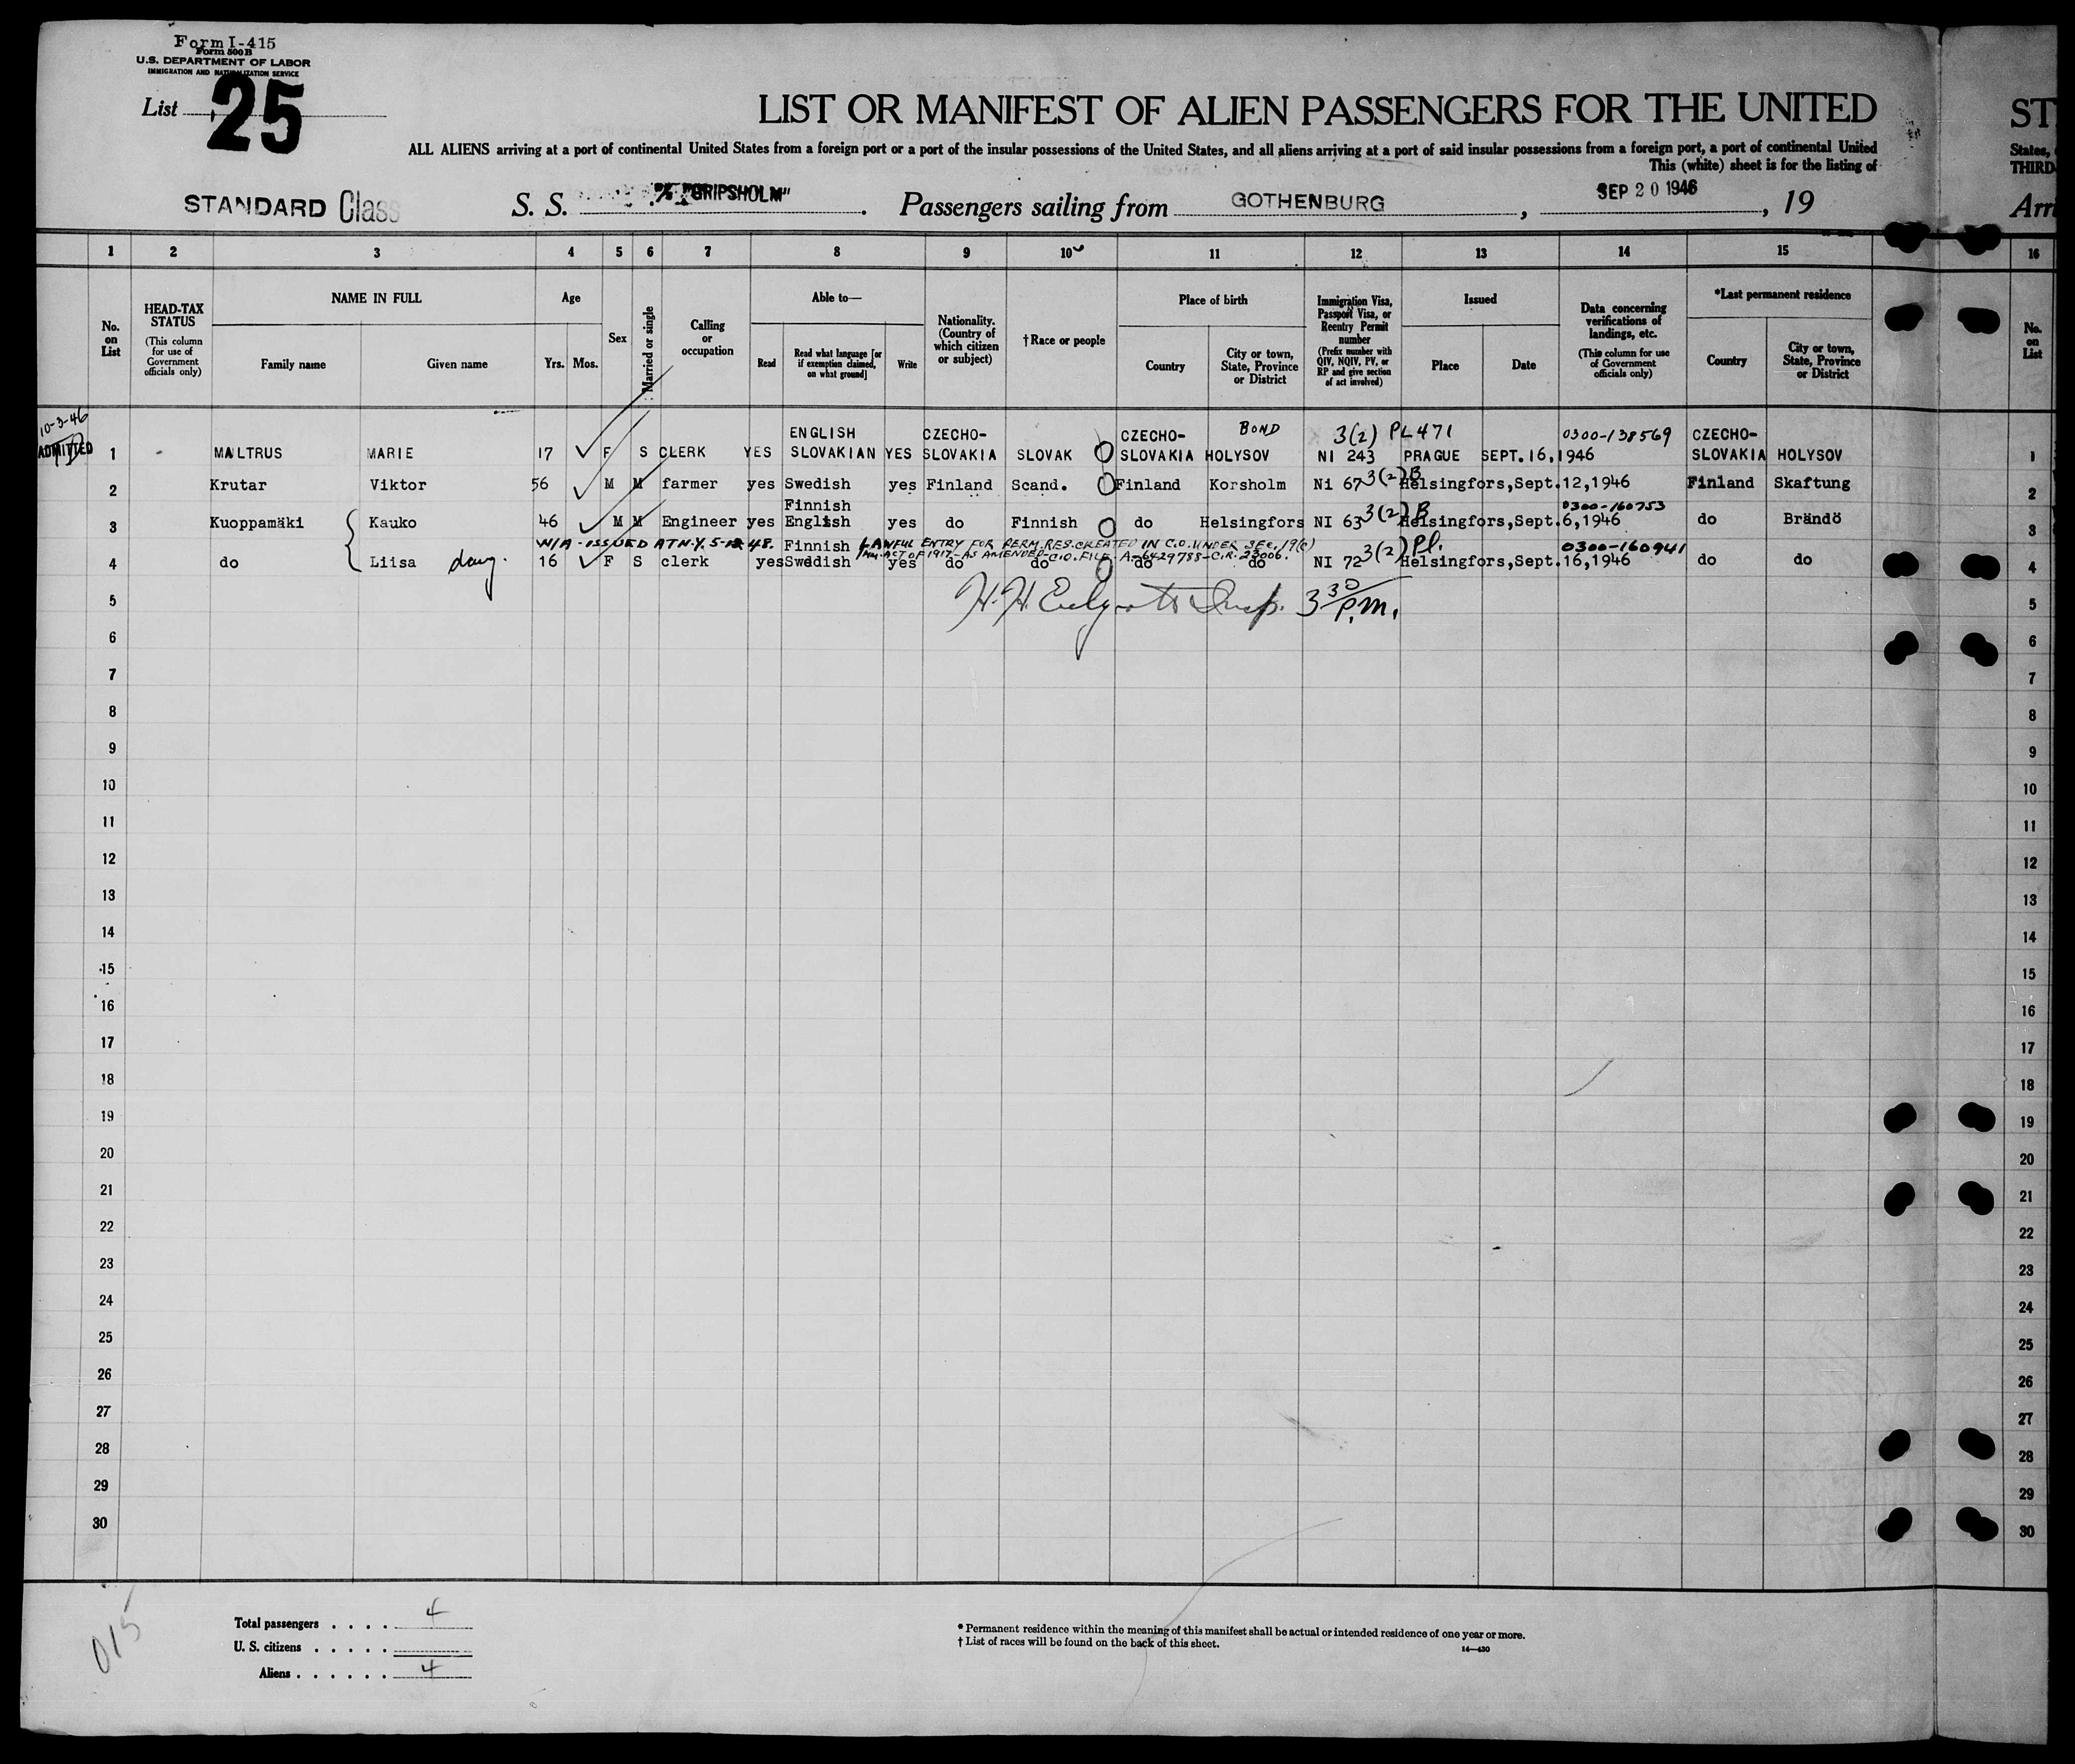 Form I-415
Form 500B
U.S. DEPARTMENT OF LABOR
IMMIGRATION AND NATURALIZATION SERVICE
List 25
LIST OR MANIFEST OF ALIEN PASSENGERS FOR THE UNITED ST
ALL ALIENS arriving at a port of continental United States from a foreign port or a port of the insular possessions of the United States, and all aliens arriving at a port of said insular possessions from a foreign port, a port of continental United States,
This (white) sheet is for the listing of THIRD
STANDARD Class S. S. "GRIPSHOLM" . Passengers sailing from GOTHENBURG , SEP 20 1946 , 19 Arri
1 2 3 4 5 6 7 8 9 10 11 12 13 14 15 16
No. on List
HEAD-TAX STATUS
(This column for use of Government officials only)
NAME IN FULL
Family name Given name
Age
Yrs. Mos.
Sex
Married or single
Calling or occupation
Able to—
Read
Read what language [or if exemption claimed, on what ground]
Write
Nationality. (Country of which citizen or subject)
†Race or people
Place of birth
Country
City or town, State, Province or District
Immigration Visa, Passport Visa, or Reentry Permit number
(Prefix number with QIV, NQIV, PV, or RP and give section of act involved)
Issued
Place Date
Data concerning verifications of landings, etc.
(This column for use of Government officials only)
*Last permanent residence
Country
City or town, State, Province or District
No. on List
10-3-46
ADMITTED
ENGLISH CZECHO- CZECHO- BOND 3(2) PL471 0300-138569 CZECHO-
1 MALTRUS MARIE 17 F S CLERK YES SLOVAKIAN YES SLOVAKIA SLOVAK SLOVAKIA HOLYSOV NI 243 PRAGUE SEPT.16,1946 SLOVAKIA HOLYSOV 1
2 Krutar Viktor 56 M M farmer yes Swedish yes Finland Scand. Finland Korsholm Ni 67 3(2)B Helsingfors,Sept.12,1946 Finland Skaftung 2
Finnish 0300-160753
3 Kuoppamäki Kauko 46 M M Engineer yes English yes do Finnish do Helsingfors NI 63 3(2)B Helsingfors,Sept.6,1946 do Brändö 3
N/A - ISSUED AT N.Y. 5-12-48. Finnish LAWFUL ENTRY FOR PERM. RES. CREATED IN C.O. UNDER SEC. 19(c)
IMM. ACT OF 1917-AS AMENDED-C.O. FILE A-6429788-C.R. 23006. 0300-160941
4 do Liisa daug. 16 F S clerk yes Swedish yes do do do do NI 72 3(2)Pl. Helsingfors,Sept.16,1946 do do 4
5 H. H. Insp. 3 30 P.M. 5
6 6
7 7
8 8
9 9
10 10
11 11
12 12
13 13
14 14
15 15
16 16
17 17
18 18
19 19
20 20
21 21
22 22
23 23
24 24
25 25
26 26
27 27
28 28
29 29
30 30
015
Total passengers . . . . 4
U. S. citizens . . . . .
Aliens . . . . . . 4
* Permanent residence within the meaning of this manifest shall be actual or intended residence of one year or more.
† List of races will be found on the back of this sheet.
14—430